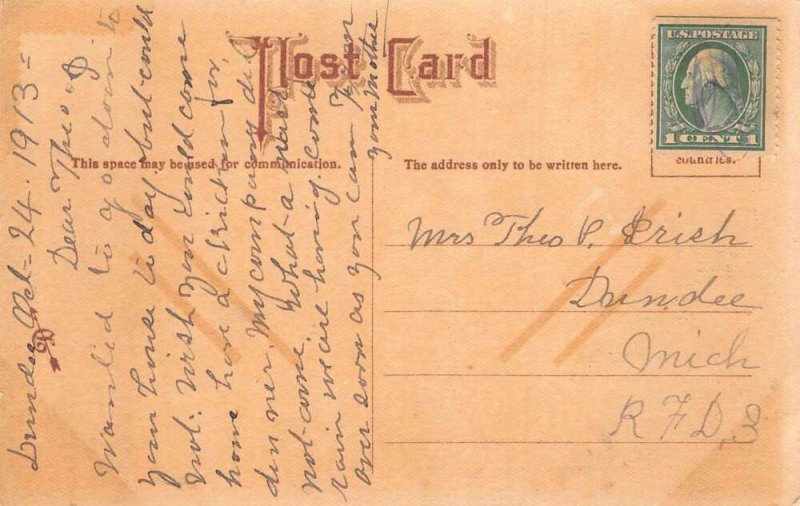 Post Card
This space may be used for communication.
The address only to be written here.
U.S. POSTAGE
1 CENT 1
countries.
Dundee Oct = 24 . 1913 =
Dear Theo
Wanted to go down to
your house to day but could
not. Wish you could come
home have a chicken for
dinner. My company did
not come What a
rain we are having. Come
over soon as you can From
your Mother
Mrs Theo P. Erich
Dundee
Mich
R F D, 3